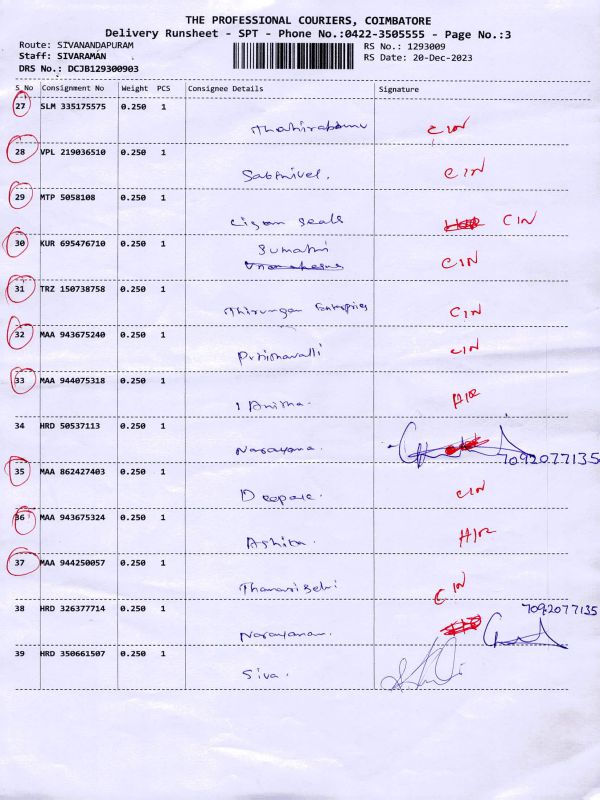 THE PROFESSIONAL COURIERS, COIMBATORE
Delivery Runsheet - SPT - Phone No.:0422-3505555 - Page No.:3
Route: SIVANANDAPURAM RS No.: 1293009
Staff: SIVARAMAN RS Date: 20-Dec-2023
DRS No.: DCJB129300903
S_No Consignment No Weight PCS Consignee Details Signature
27 SLM 335175575 0.250 1
CIN
28 VPL 219036510 0.250 1
Sakthivel. CIN
29 MTP 5058108 0.250 1
seals CIN
30 KUR 695476710 0.250 1
Sumathi
CIN
31 TRZ 150738758 0.250 1
Enterprises CIN
32 MAA 943675240 0.250 1
CIN
33 MAA 944075318 0.250 1
Anitha.
34 HRD 50537113 0.250 1
Narayana. 7092077135
35 MAA 862427403 0.250 1
Deepak. CIN
36 MAA 943675324 0.250 1
37 MAA 944250057 0.250 1
CIN
38 HRD 326377714 0.250 1 7092077135
Narayanan.
39 HRD 350661507 0.250 1
Siva.